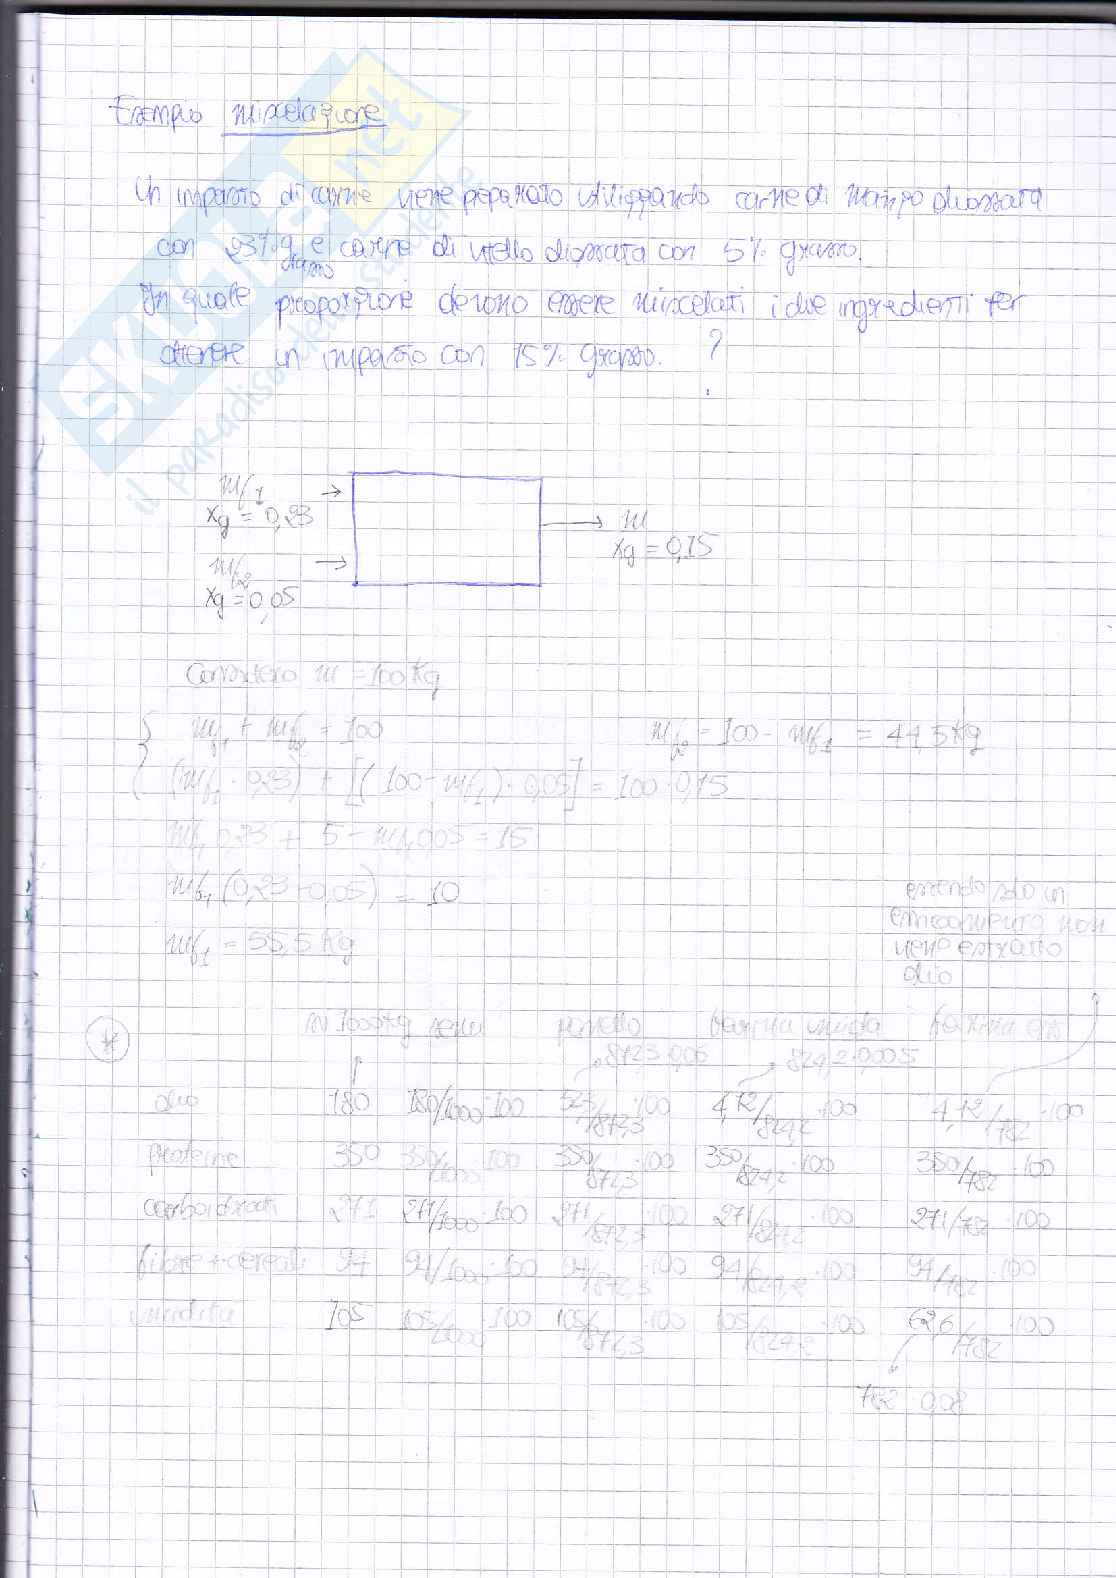 Esempio miscelazione
Un impasto di carne viene preparato utilizzando carne di manzo disossata
con 23% g e carne di vitello disossata con 5% grasso.
grasso
In quale proporzione devono essere miscelati i due ingredienti per
ottenere un impasto con 15% grasso. ?
SKUOLA.net
il paradiso dello studente
mf1
xg = 0,23
m
xg = 0,15
mf2
xg = 0,05
Considero m = 100 Kg
mf1 + mf2 = 100
mf2 = 100 - mf1 = 44,5 Kg
(mf1 · 0,23) + [(100 - mf1) · 0,05] = 100 · 0,15
mf1 0,23 + 5 - mf1 0,05 = 15
mf1 (0,23 - 0,05) = 10
mf1 = 55,5 Kg
essendo solo un
essiccamento non
viene estratto
olio
*
IN 1000 Kg semi pannello farina umida farina ess
872,3·0,06 824,2·0,005
olio 180 180/1000·100 52,3/872,3·100 4,12/824,2·100 4,12/782·100
proteine 350 350/1000·100 350/872,3·100 350/824,2·100 350/782·100
carboidrati 271 271/1000·100 271/872,3·100 271/824,2·100 271/782·100
fibre + cereali 94 94/1000·100 94/872,3·100 94/824,2·100 94/782·100
umidità 105 105/1000·100 105/872,3·100 105/824,2·100 62,6/782·100
782·0,08